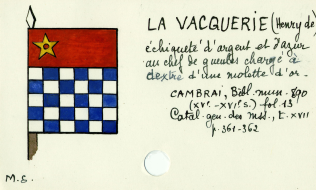 LA VACQUERIE (Henry de)
échiqueté d'argent et d'azur
au chef de gueules chargé à
dextre d'une molette d'or.
CAMBRAI, Bibl. mun. 890
(XVᵉ-XVIᵉ s.) fol 13
Catal. gen. des mss, t. XVII
p. 361-362
M.S.